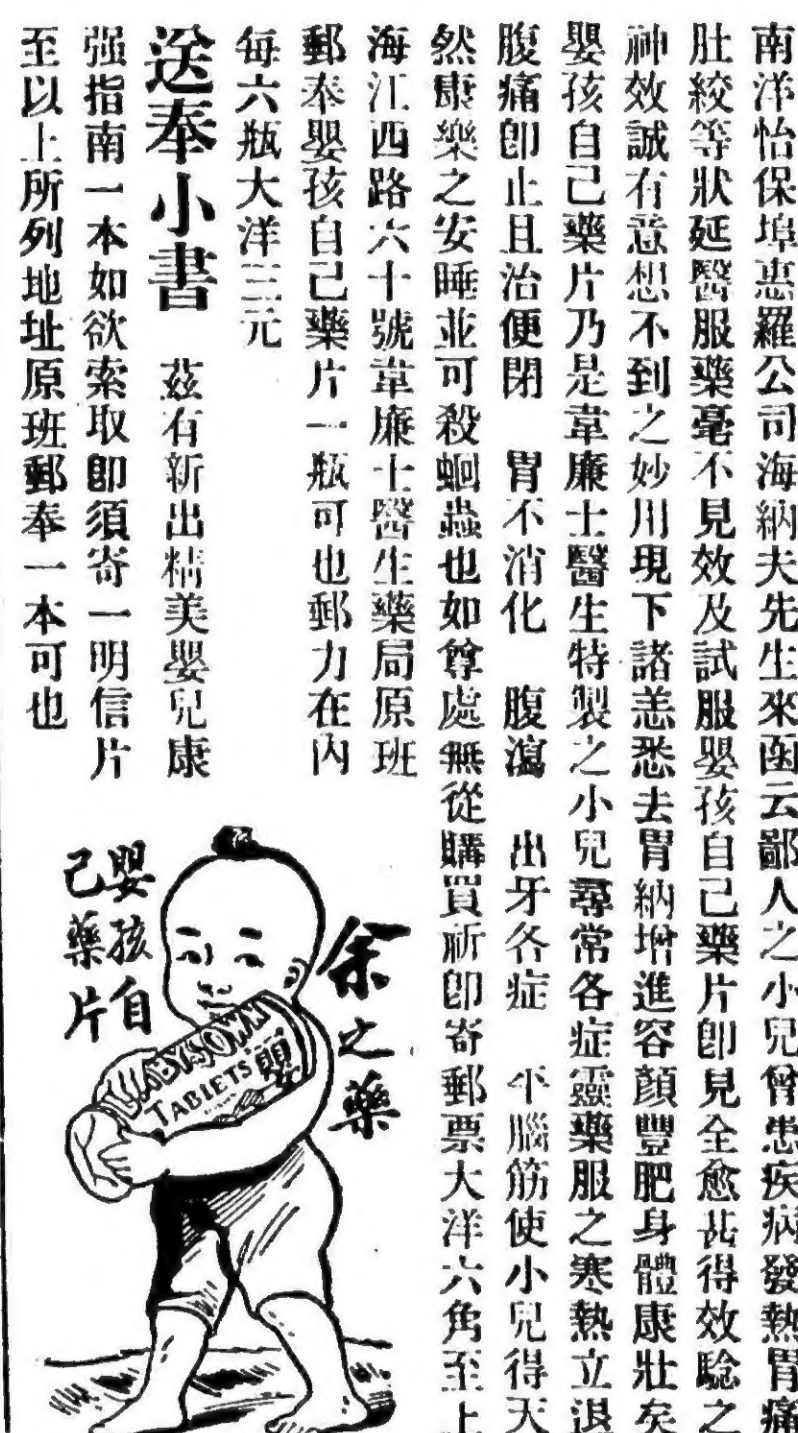 南洋怡保埠惠羅公司海納夫先生來函云鄙人之小兒曾患疾病發熱胃痛
肚絞等狀延醫服藥毫不見效及試服嬰孩自己藥片卽見全愈甚得效驗之
神效誠有意想不到之妙用現下諸恙悉去胃納增進容顏豐肥身體康壯矣
嬰孩自己藥片乃是韋廉士醫生特製之小兒尋常各症靈藥服之寒熱立退
腹痛卽止且治便閉 胃不消化 腹瀉 出牙各症 平腦筋使小兒得天
然康樂之安睡並可殺蛔蟲也如尊處無從購買祈卽寄郵票大洋六角至上
海江西路六十號韋廉士醫生藥局原班
郵奉嬰孩自己藥片一瓶可也郵力在內
每六瓶大洋三元
送奉小書 茲有新出精美嬰兒康
强指南一本如欲索取卽須寄一明信片
至以上所列地址原班郵奉一本可也
余之藥
嬰孩自
己藥片
BABY'S OWN
TABLETS
嬰